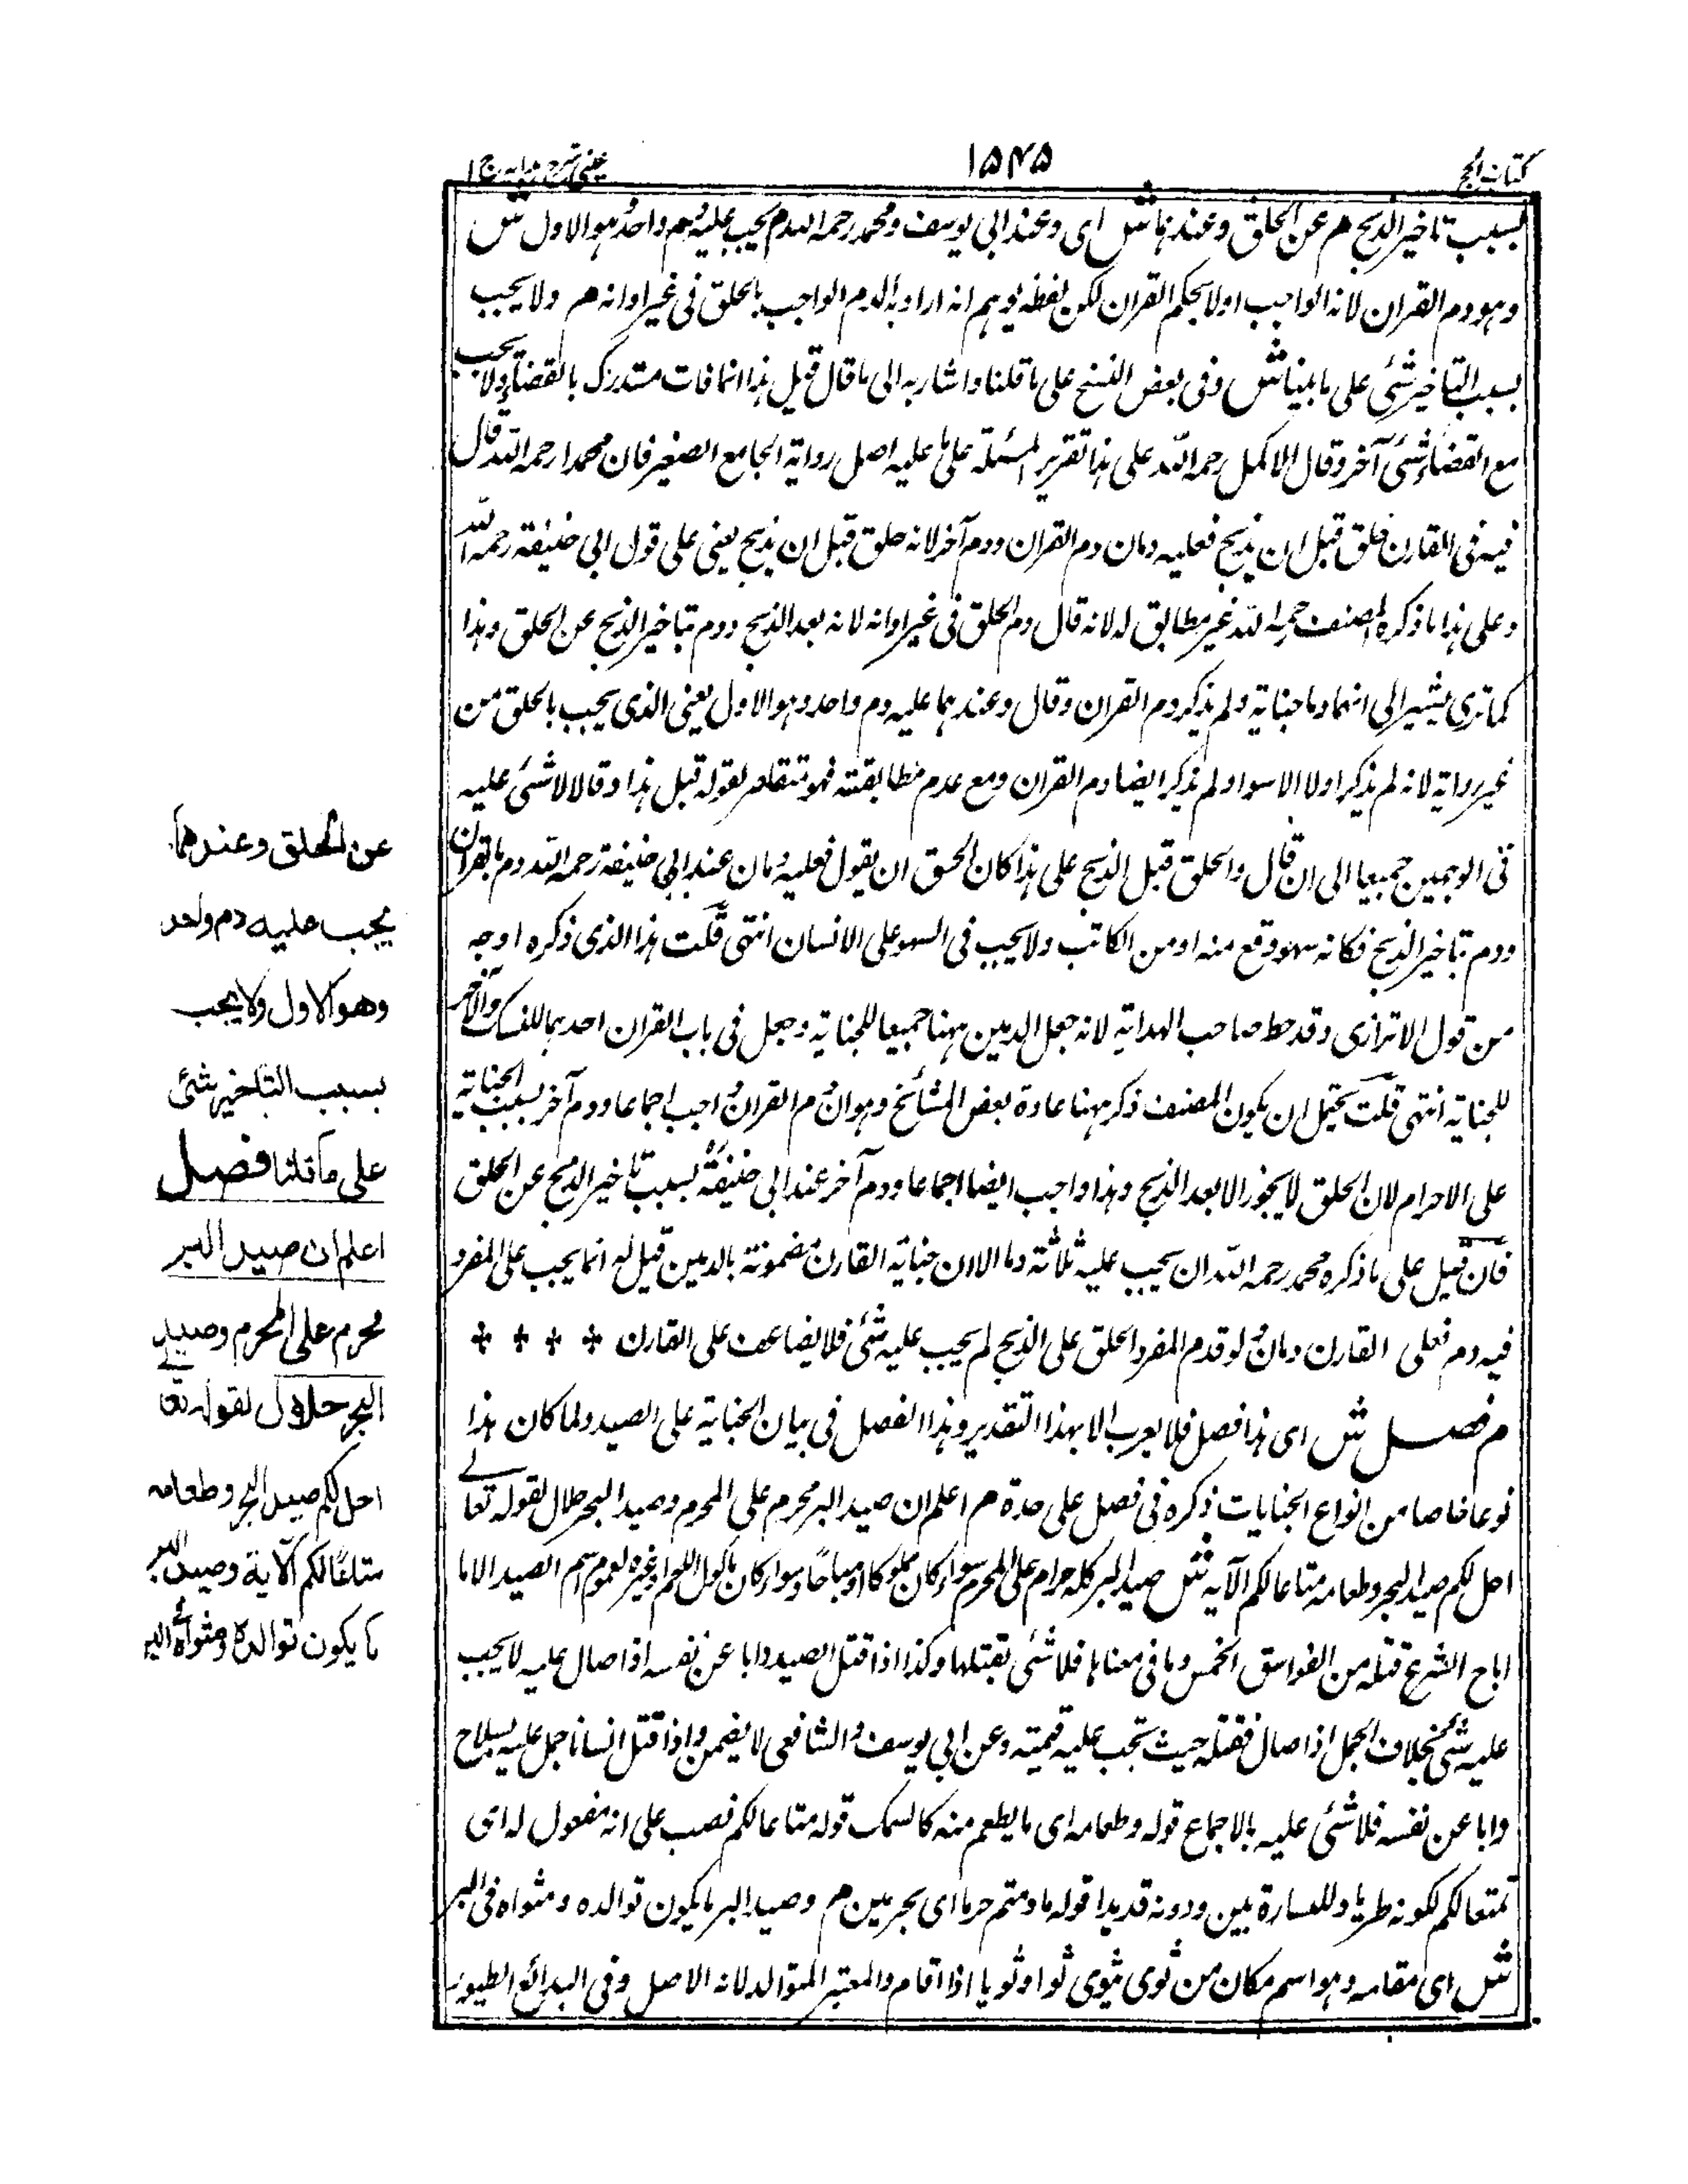 كتاب الحج
١٥٤٥
عينى شرح هدايه ج ١
بسبب تاخير الذبح م عن الحلق وعندهما ش اى وعند ابى يوسف ومحمد رحمه الله م يجب عليه دم واحد وهو الاول ش
وهو دم القران لانه الواجب اولا بحكم القران لكن لفظه يوهم انه اراد به الدم الواجب بالحلق فى غير اوانه م ولا يجب
بسبب التاخير شئ على ما بينا ش وفى بعض النسخ على ما قلنا واشار به الى ما قال قبل هذا انما فات مستدرك بالقضاء ولا يجب
مع القضاء شئ آخر وقال الاكمل رحمه الله على هذا تقرير المسئلة على ما عليه اصل رواية الجامع الصغير فان محمدا رحمه الله قال
فيه فى القارن حلق قبل ان يذبح فعليه دمان دم القران ودم آخر لانه حلق قبل ان يذبح يعنى على قول ابى حنيفة رحمه الله
وعلى هذا ما ذكره المصنف رحمه الله غير مطابق له لانه قال دم الحلق فى غير اوانه لانه بعد الذبح ودم بتاخير الذبح عن الحلق وهذا
كما ترى يشير الى انهما دما جناية ولم يذكر دم القران وقال وعندهما عليه دم واحد وهو الاول يعنى الذى يجب بالحلق من
غير رواية لانه لم يذكر اولا الا سواه ولم يذكر ايضا دم القران ومع عدم مطابقته فهو متناقض لقوله قبل هذا وقالا لا شئ عليه
فى الوجهين جميعا الى ان قال والحلق قبل الذبح على هذا كان الحق ان يقول فعليه دمان عند ابى حنيفة رحمه الله دم بالقران
ودم بتاخير الذبح فكانه سهو وقع منه او من الكاتب ولا يجب فى السهو على الانسان انتهى قلت هذا الذى ذكره اوجه
من قول الاترازى وقد خبط صاحب الهداية لانه جعل الدمين ههنا جميعا للجناية وجعل فى باب القران احدهما للنسك والآخر
للجناية انتهى قلت يحتمل ان يكون المصنف ذكر ههنا عادة بعض المشائخ وهو ان دم القران واجب اجماعا ودم آخر بسبب الجناية
على الاحرام لان الحلق لا يجوز الا بعد الذبح وهذا واجب ايضا اجماعا ودم آخر عند ابى حنيفة بسبب تاخير الذبح عن الحلق
فان قيل على ما ذكره محمد رحمه الله ان يجب عليه ثلاثة دما لان جناية القارن مضمونة بالدمين قيل له انما يجب على المفرد
فيه دم فعلى القارن دمان لو قدم المفرد الحلق على الذبح لم يجب عليه شئ فلا يضاعف على القارن
م فصل ش اى هذا فصل فلا يعرب الا بهذا التقدير وهذا الفصل فى بيان الجناية على الصيد ولما كان هذا
نوعا خاصا من انواع الجنايات ذكره فى فصل على حدة م اعلم ان صيد البر محرم على المحرم وصيد البحر حلال لقوله تعالى
احل لكم صيد البحر وطعامه متاعا لكم الآية ش صيد البر كله حرام على المحرم سواء كان مملوكا او مباحا وسواء كان ماكول اللحم او غيره لعموم اسم الصيد الا ما
اباح الشرع قتله من الفواسق الخمس وما فى معناها فلا شئ بقتلها وكذا اذا قتل الصيد دابا عن نفسه اذا صال عليه لا يجب
عليه شئ بخلاف الجمل اذا صال فقتله حيث تجب عليه قيمته وعن ابى يوسف والشافعى لا يضمن واذا قتل انسانا حمل عليه بسلاح
دابا عن نفسه فلا شئ عليه بالاجماع قوله وطعامه اى ما يطعم منه كالسمك قوله متاعا لكم نصب على انه مفعول له اى
تمتعا لكم لكونه طريا وللسيارة قديدا قوله ما دمتم حرما اى محرمين م وصيد البر ما يكون توالده ومثواه فى البر
ش اى مقامه وهو اسم مكان من ثوى يثوى ثواء وثويا اذا اقام والمعتبر التوالد لانه الاصل وفى البدائع الطيور
عن الحلق وعندهما
يجب عليه دم واحد
وهو الاول ولا يجب
بسبب التاخير شئ
على ما قلنا فصل
اعلم ان صيد البر
محرم على المحرم وصيد
البحر حلال لقوله تعالى
احل لكم صيد البحر وطعامه
متاعا لكم الآية وصيد البر
ما يكون توالده ومثواه فى البر